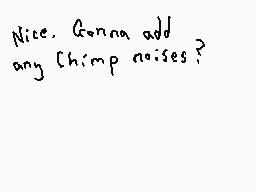 Nice. Gonna add
any Chimp noises?